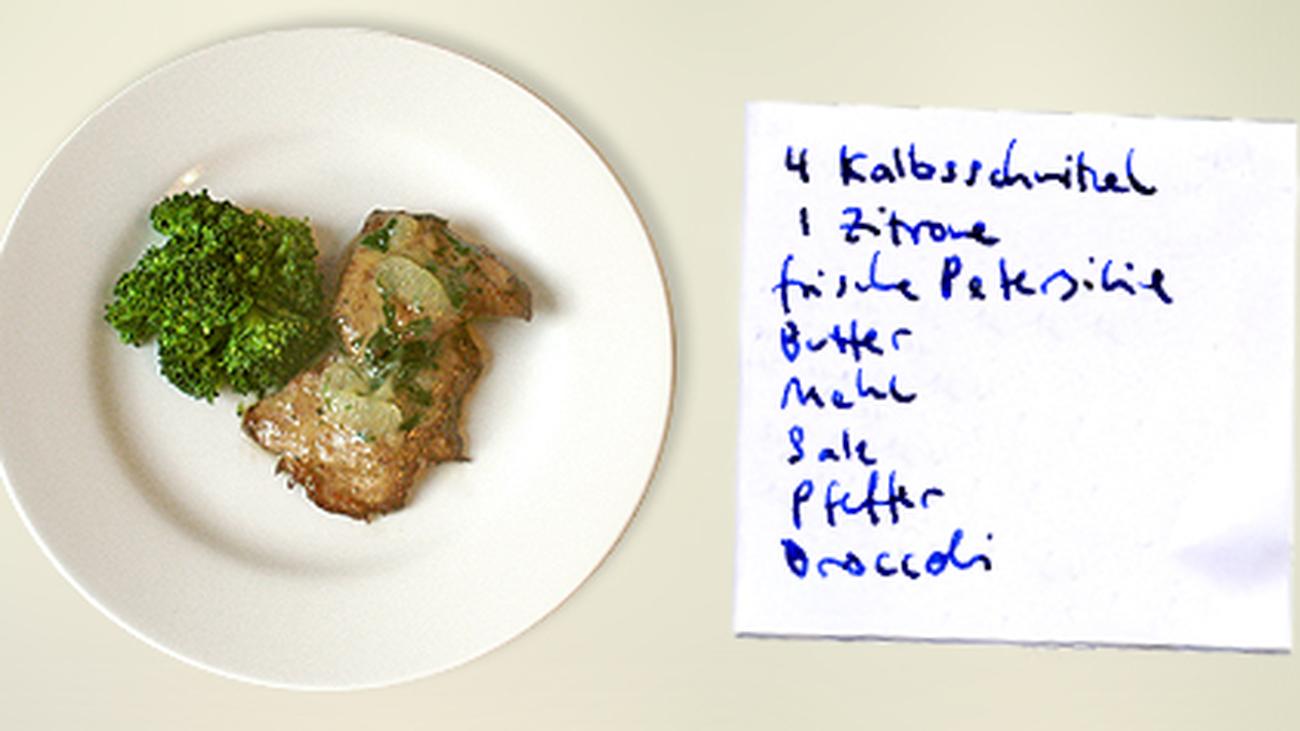 4 Kalbsschnitzel
1 Zitrone
frische Petersilie
Butter
Mehl
Salz
Pfeffer
Broccoli